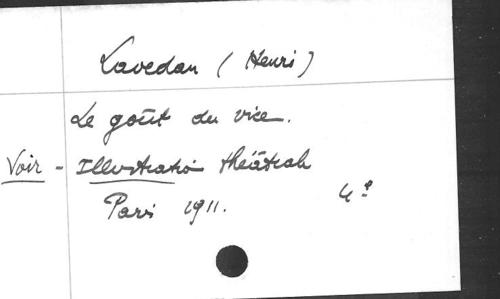 Lavedan (Henri)
Le goût du vice.
Voir - Illustration théâtrale
Paris 1911. 4º